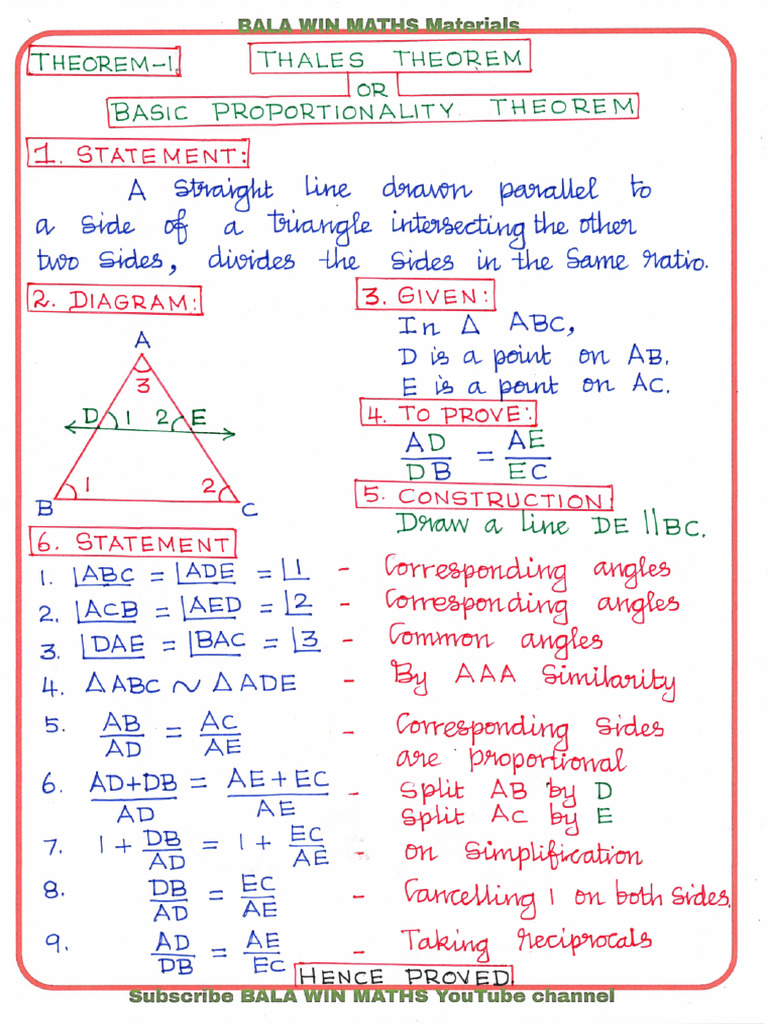 BALA WIN MATHS Materials
THEOREM-1. THALES THEOREM
OR
BASIC PROPORTIONALITY THEOREM
1. STATEMENT:
A straight line drawn parallel to
a side of a triangle intersecting the other
two sides, divides the sides in the same ratio.
2. DIAGRAM:
A
3
D 1 2 E
1 2
B C
3. GIVEN:
In Δ ABC,
D is a point on AB.
E is a point on AC.
4. TO PROVE:
AD/DB = AE/EC
5. CONSTRUCTION
Draw a line DE ∥ BC.
6. STATEMENT
1. ∠ABC = ∠ADE = ∠1 - Corresponding angles
2. ∠ACB = ∠AED = ∠2 - Corresponding angles
3. ∠DAE = ∠BAC = ∠3 - Common angles
4. ΔABC ~ ΔADE - By AAA Similarity
5. AB/AD = AC/AE - Corresponding sides
are proportional
6. AD+DB/AD = AE+EC/AE - Split AB by D
Split AC by E
7. 1 + DB/AD = 1 + EC/AE - on simplification
8. DB/AD = EC/AE - Cancelling 1 on both sides.
9. AD/DB = AE/EC - Taking reciprocals
HENCE PROVED
Subscribe BALA WIN MATHS YouTube channel